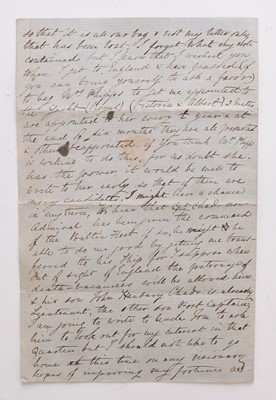 so that it is all our bag & not my letter only
that has been lost. I forget what my note
contained but I know that I wished you
when I get to England & have passed (if
you can bring yourself to ask a favor)
to beg Mrs Phipps to get me appointed to
the Yacht (Royal) (Victoria & Albert) 3 mates
are appointed to her every ½ year & at
the end of six months they are all promoted
& others reappointed. if you think Mrs Phipps
is willing to do this, for no doubt she
has the power it would be well to
write to her early so that if there are
many candidates I might have a chance
in my turn, We hear that Capt Chads now
Admiral has been given the command
of the Baltic Fleet if so, he might be
able to do me good by getting me trans
ferred to his Ship for I suppose when
out of sight of England the patronage of
death vacancies will be allowed him
& his son John Hanbury Chads is already
Lieutenant, the other son Post Captain,
I am going to write to Uncle Tom to ask
him to look out for my interest in that
quarter but I should not like to go
home at this time on any visionary
hopes of improving my fortunes as